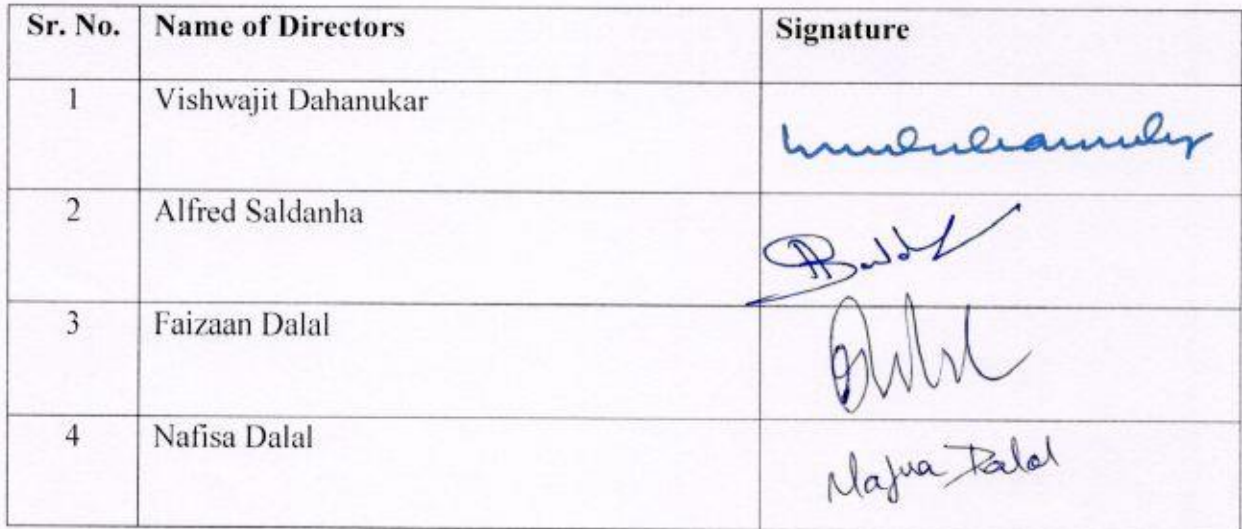 Sr. No. Name of Directors Signature
1 Vishwajit Dahanukar
2 Alfred Saldanha
3 Faizaan Dalal
4 Nafisa Dalal Nafisa Dalal